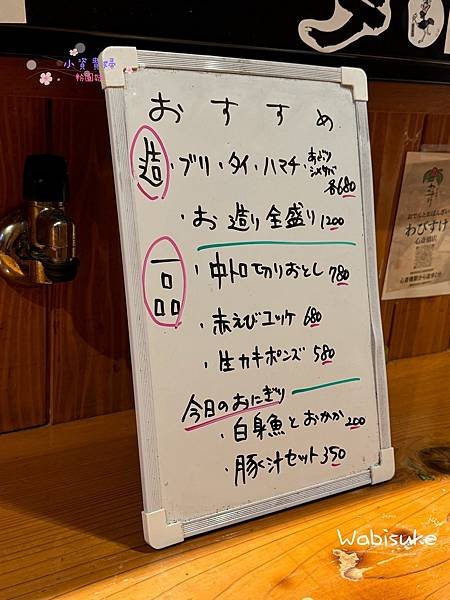 小資貴婦
粉圓妹
おすすめ
造
・ブリ・タイ・ハマチ・あぶりシメサバ 各680
・お造り全盛り 1200
一品
・中トロ切りおとし 780
・赤えびユッケ 680
・生カキポンズ 580
今日のおにぎり
・白身魚とおかか 200
・豚汁セット 350
おでんとおばんざい
わびすけ
心斎橋店
Wabisuke